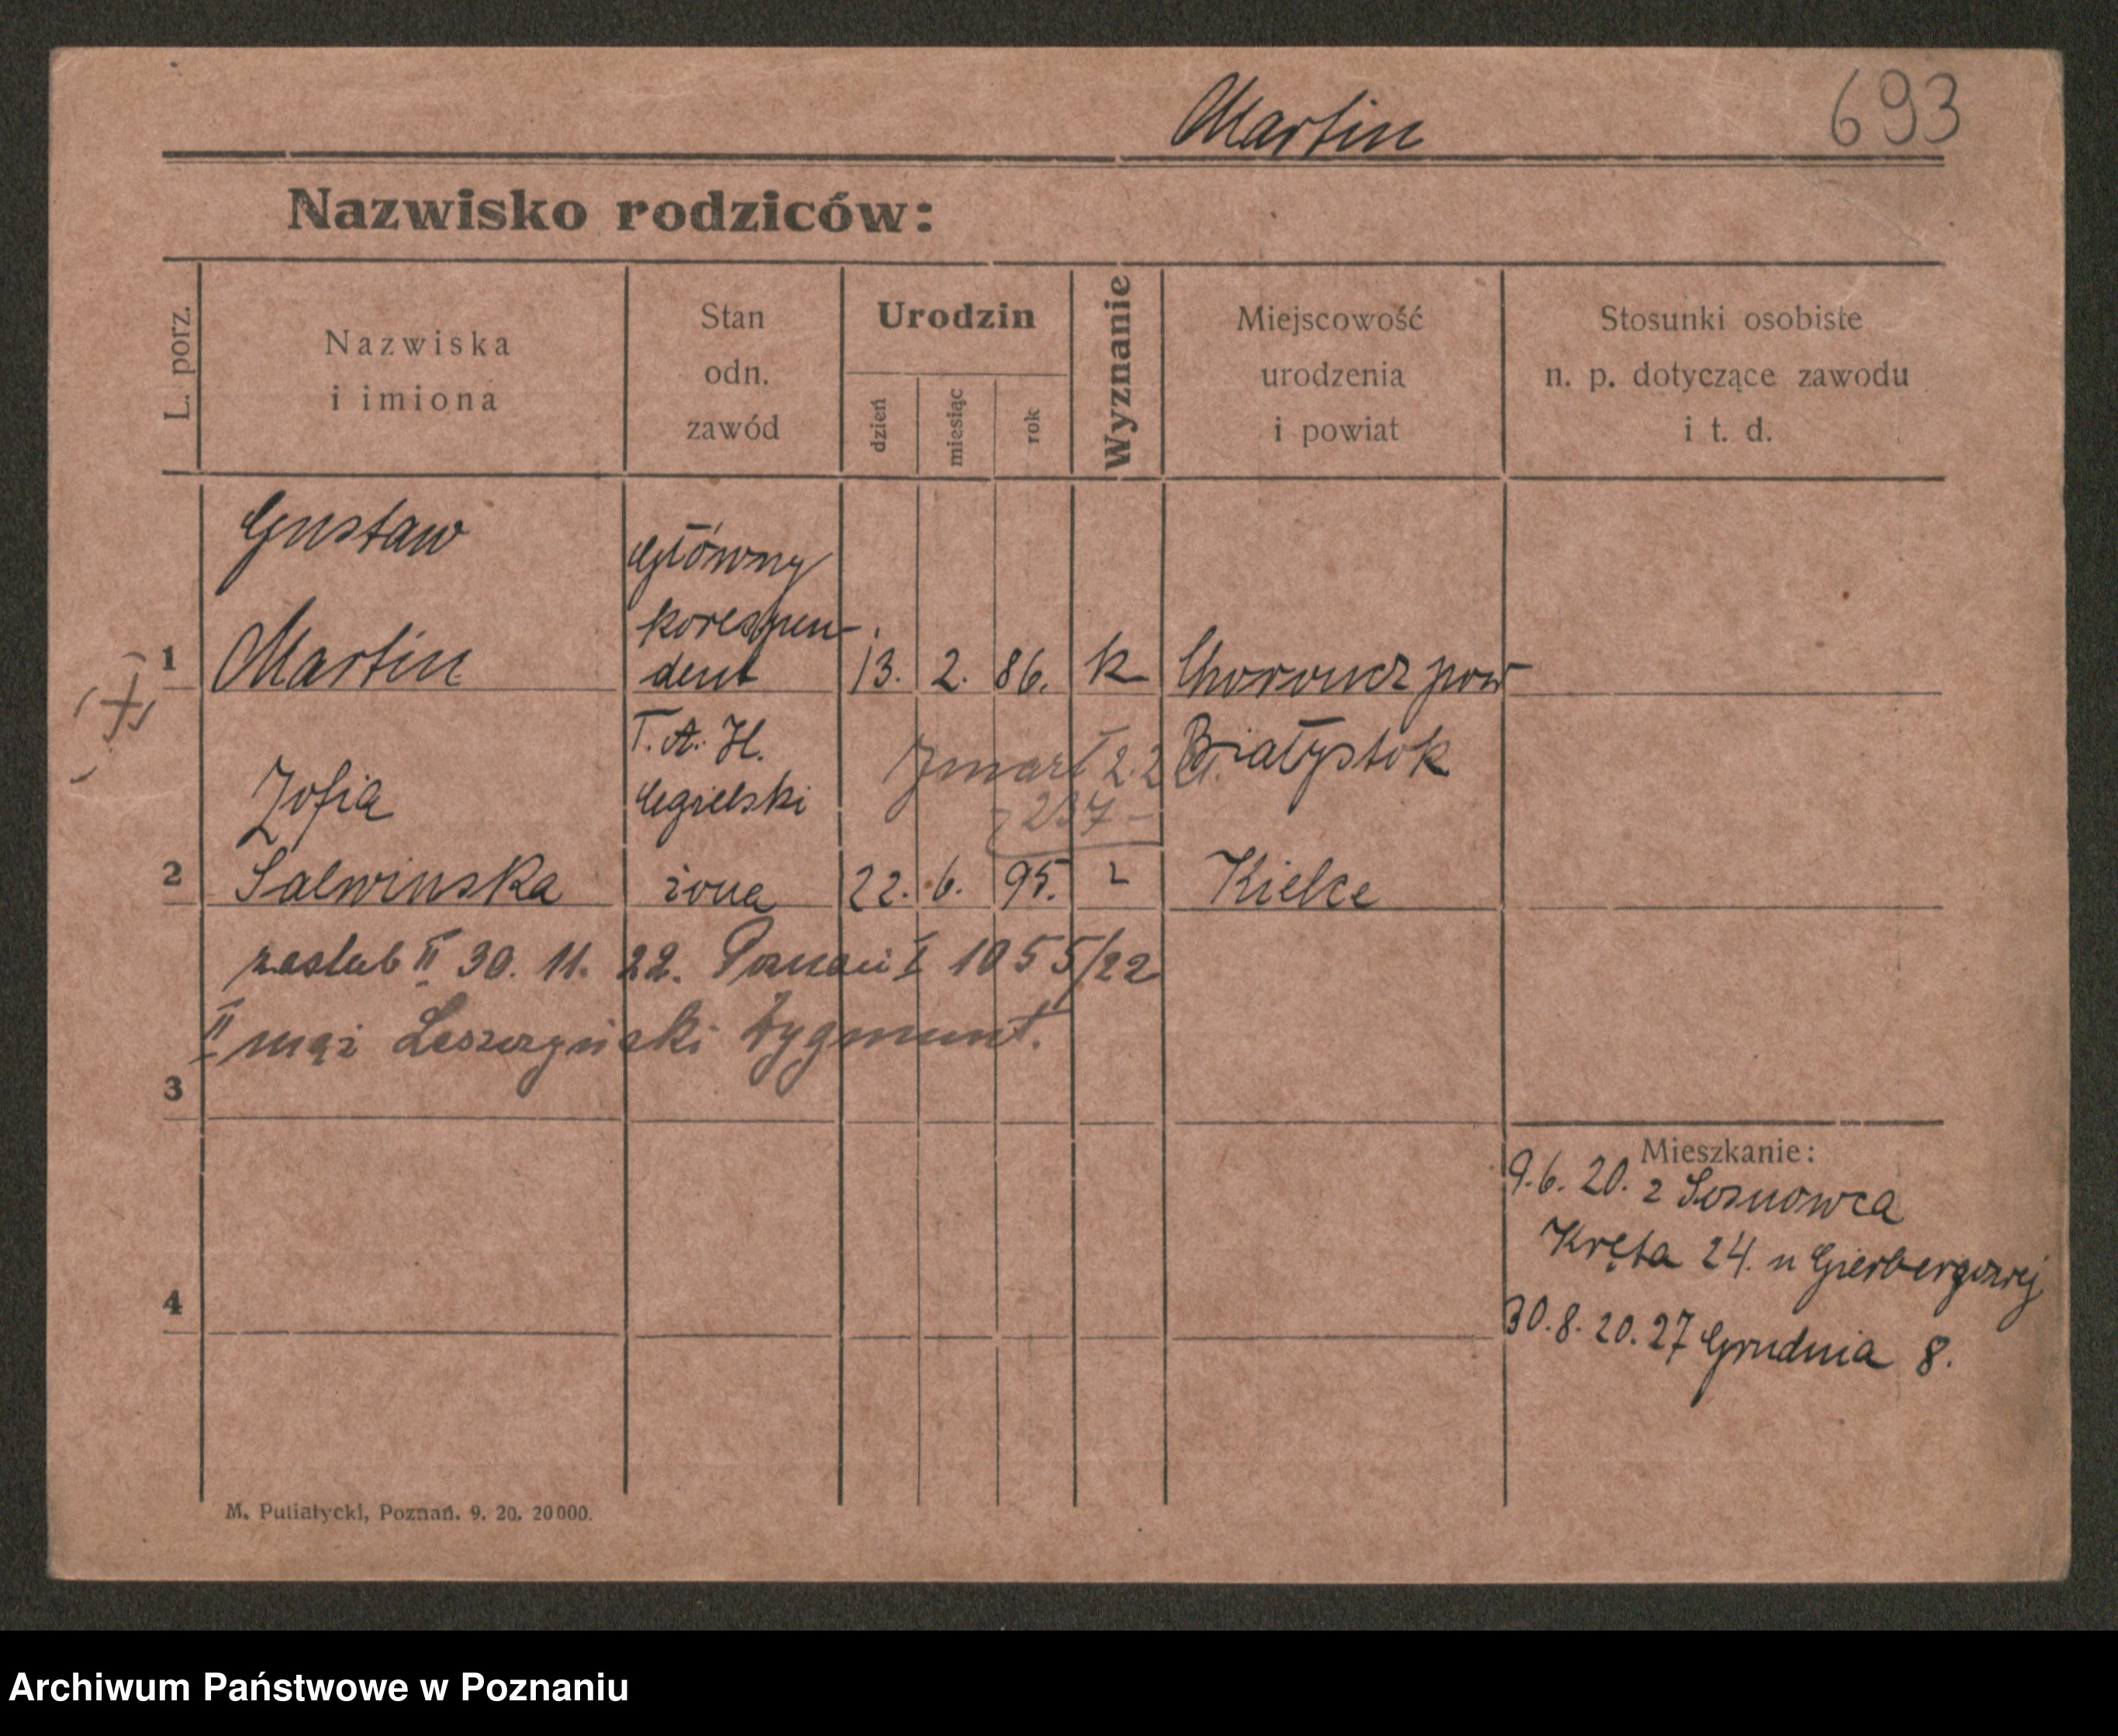 Martin
693
Nazwisko rodziców:
L. porz.
Nazwiska
i imiona
Stan
odn.
zawód
Urodzin
dzień
miesiąc
rok
Wyznanie
Miejscowość
urodzenia
i powiat
Stosunki osobiste
n. p. dotyczące zawodu
i t. d.
Gustaw
Główny
korespon-
1 Martin dent 13. 2. 86. k Choroszcz pow
T. A. H. Białystok
Zofia Cegielski zmarł 2.2.21.
237
2 Salwinska żona 22. 6. 95. Kielce
zaslub II 30. 11. 22. Poznań I 1055/22
II mąż Leszczyński Zygmunt.
3
Mieszkanie:
9.6.20. z Sosnowca
Kręta 24. u Gierbergowej
4
30.8.20. 27 Grudnia 8.
M. Putiatycki, Poznań. 9. 20. 20000.
Archiwum Państwowe w Poznaniu